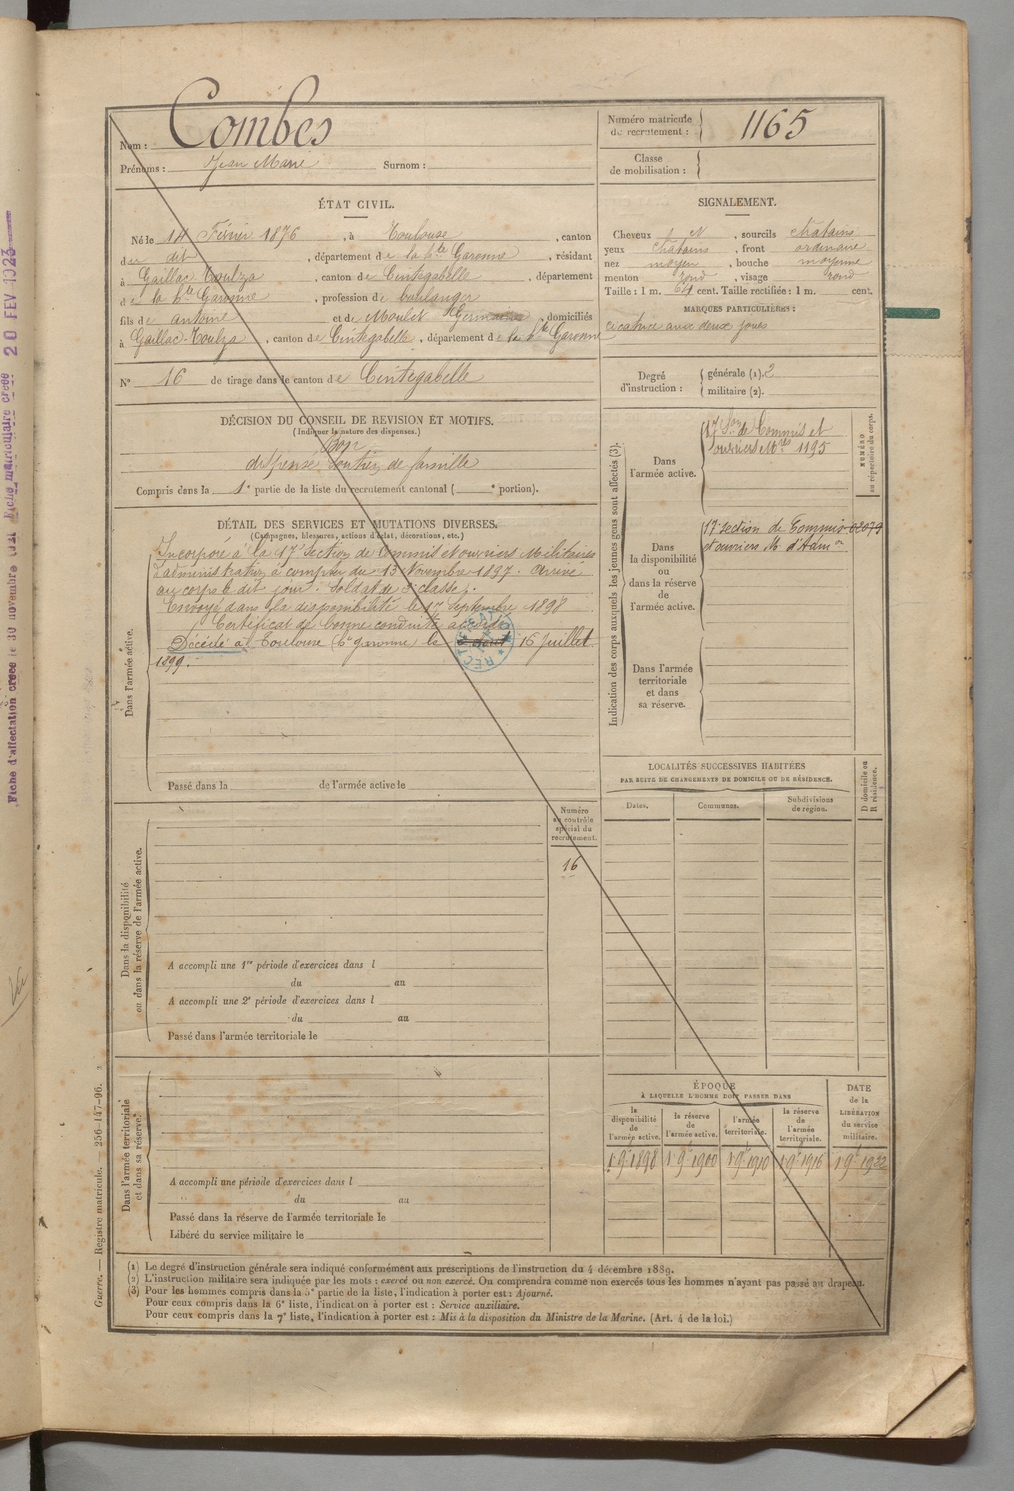 Nom : Combes
Prénoms : Jean Marie Surnom :
Numéro matricule
du recrutement : 1165
Classe
de mobilisation :
ÉTAT CIVIL.
Né le 14 Février 1876, à Toulouse, canton
du dit, département de la hte Garonne, résidant
à Gaillac-Toulza, canton de Cintegabelle, département
de la hte Garonne, profession de boulanger
fils de Antoine et de Moulet Germaine, domiciliés
à Gaillac-Toulza, canton de Cintegabelle, département de la hte Garonne
N° 16 de tirage dans le canton de Cintegabelle
SIGNALEMENT.
Cheveux N, sourcils châtains
yeux châtains, front ordinaire
nez moyen, bouche moyenne
menton rond, visage rond
Taille : 1 m. 64 cent. Taille rectifiée : 1 m. cent.
MARQUES PARTICULIÈRES :
cicatrice aux deux joues
Degré
d'instruction :
générale (1). 2
militaire (2).
DÉCISION DU CONSEIL DE REVISION ET MOTIFS.
(Indiquer la nature des dispenses.)
Bon
dispensé soutien de famille
Compris dans la 1e partie de la liste du recrutement cantonal ( e portion).
DÉTAIL DES SERVICES ET MUTATIONS DIVERSES.
(Campagnes, blessures, actions d'éclat, décorations, etc.)
Dans l'armée active.
Incorporé à la 17e Section de Commis et ouvriers Militaires
d'administration à compter du 13 Novembre 1897. Arrivé
au corps le dit jour. Soldat de 2e classe.
Envoyé dans la disponibilité le 17 Septembre 1898
Certificat de bonne conduite accordé
Décédé à Toulouse (hte garonne le 16 juillet
1899.
RECTIFICATION
Passé dans la de l'armée active le
Indication des corps auxquels les jeunes gens sont affectés (3).
NUMÉRO
au répertoire du corps.
Dans
l'armée active.
17 Son de Commis et
ouvriers Mres 1195
Dans
la disponibilité
ou
dans la réserve
de
l'armée active.
17 section de Commis 02079
et ouvriers M. d'Admon
Dans l'armée
territoriale
et dans
sa réserve.
LOCALITÉS SUCCESSIVES HABITÉES
PAR SUITE DE CHANGEMENTS DE DOMICILE OU DE RÉSIDENCE.
D domicile ou
R résidence.
Dates. Communes. Subdivisions
de région.
Numéro
au contrôle
spécial du
recrutement.
16
Dans la disponibilité
ou dans la réserve de l'armée active.
A accompli une 1re période d'exercices dans l
du au
A accompli une 2e période d'exercices dans l
du au
Passé dans l'armée territoriale le
Dans l'armée territoriale
et dans sa réserve.
A accompli une période d'exercices dans l
du au
Passé dans la réserve de l'armée territoriale le
Libéré du service militaire le
ÉPOQUE
À LAQUELLE L'HOMME DOIT PASSER DANS
la
disponibilité
de
l'armée active.
la réserve
de
l'armée active.
l'armée
territoriale.
la réserve
de
l'armée
territoriale.
DATE
de la
LIBÉRATION
du service
militaire.
1 9e 1898 1 9e 1900 1 9e 1910 1 9e 1916 1 9e 1922
(1) Le degré d'instruction générale sera indiqué conformément aux prescriptions de l'instruction du 4 décembre 1889.
(2) L'instruction militaire sera indiquée par les mots : exercé ou non exercé. On comprendra comme non exercés tous les hommes n'ayant pas passé au drapeau.
(3) Pour les hommes compris dans la 5e partie de la liste, l'indication à porter est : Ajourné.
Pour ceux compris dans la 6e liste, l'indication à porter est : Service auxiliaire.
Pour ceux compris dans la 7e liste, l'indication à porter est : Mis à la disposition du Ministre de la Marine. (Art. 4 de la loi.)
Guerre. — Registre matricule. — 256-147-96.
Fiche d'affectation créée le 30 novembre 1931 Fiche matriculaire créée 20 FEV 1923